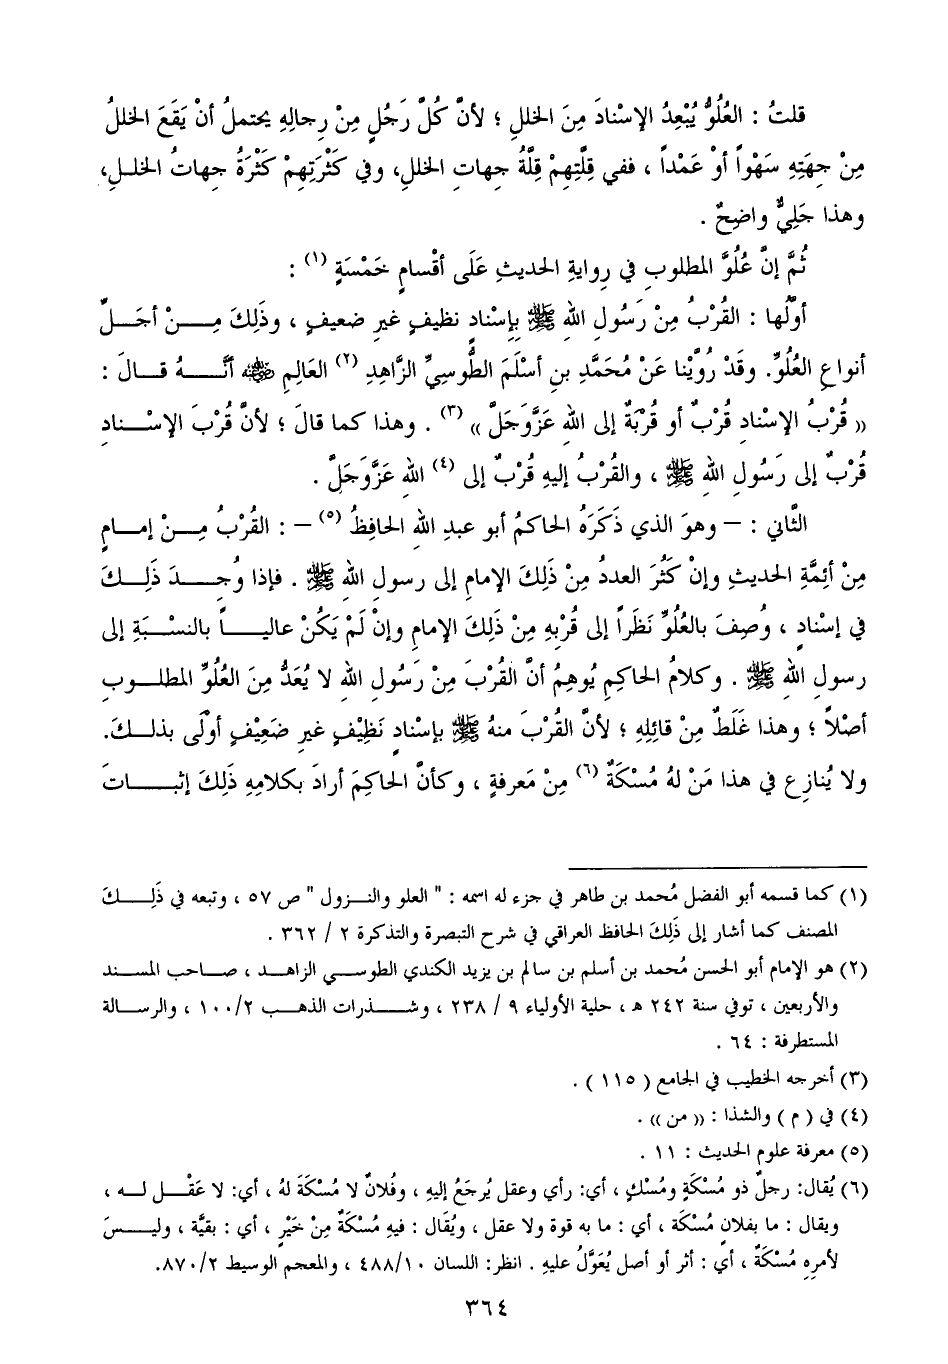 قلتُ : العُلُوُّ يُبْعِدُ الإسْنادَ مِنَ الخللِ ؛ لأنَّ كُلَّ رَجُلٍ مِنْ رِجالِهِ يحتملُ أنْ يَقَعَ الخللُ
مِنْ جِهَتِهِ سَهْواً أوْ عَمْداً ، ففي قِلَّتِهِمْ قِلَّةُ جِهاتِ الخللِ، وفي كَثْرَتِهِمْ كَثْرَةُ جِهاتُ الخللِ،
وهذا جَلِيٌّ واضِحٌ .
ثُمَّ إنَّ عُلُوَّ المطلوبِ في رِوايةِ الحديثِ عَلَى أقْسامٍ خَمْسَةٍ (١) :
أوَّلُها : القُرْبُ مِنْ رَسُولِ اللهِ ﷺ بِإسْنادٍ نظيفٍ غيرِ ضعيفٍ ، وذَلِكَ مِـنْ أجَلِّ
أنواعِ العُلُوِّ. وقَدْ رُوِّيْنا عَنْ مُحَمَّدِ بنِ أسْلَمَ الطُّوسِيِّ الزَّاهِدِ (٢) العَالِمِ رضي الله عنه أنَّـهُ قـالَ :
(( قُرْبُ الإسْنادِ قُرْبٌ أو قُرْبَةٌ إلى اللهِ عَزَّوَجَلَّ )) (٣) . وهذا كما قالَ ؛ لأنَّ قُرْبَ الإسْـنادِ
قُرْبٌ إلى رَسُولِ اللهِ ﷺ ، والقُرْبُ إليهِ قُرْبٌ إلى (٤) اللهِ عَزَّوَجَلَّ .
الثَّاني : – وهوَ الذي ذَكَرَهُ الحاكمُ أبو عبدِ اللهِ الحافِظُ (٥) – : القُرْبُ مِـنْ إمـامٍ
مِنْ أئِمَّةِ الحديثِ وإنْ كَثُرَ العددُ مِنْ ذَلِكَ الإمامِ إلى رسولِ اللهِ ﷺ . فإذا وُجِـدَ ذَلِـكَ
في إسْنادٍ ، وُصِفَ بالعُلُوِّ نَظَراً إلى قُرْبِهِ مِنْ ذَلِكَ الإمامِ وإنْ لَمْ يَكُنْ عالياً بالنِّسْبَةِ إلى
رسولِ اللهِ ﷺ . وكلامُ الحاكِمِ يُوهِمُ أنَّ القُرْبَ مِنْ رَسُولِ اللهِ لا يُعَدُّ مِنَ العُلُوِّ المطلـوبِ
أصْلاً ؛ وهذا غَلَطٌ مِنْ قائِلِهِ ؛ لأنَّ القُرْبَ منهُ ﷺ بإسْنادٍ نَظِيْفٍ غيرِ ضَعِيْفٍ أوْلَى بذلـكَ.
ولا يُنازِع في هذا مَنْ لهُ مُسْكَةٌ (٦) مِنْ مَعرفةٍ ، وكأنَّ الحاكِمَ أرادَ بكلامِهِ ذَلِكَ إثبـاتَ
(١) كما قسمه أبو الفضل مُحمد بن طاهر في جزء له اسمه : " العلو والنـزول " ص ٥٧ ، وتبعه في ذَلِـكَ
المصنف كما أشار إلى ذَلِكَ الحافظ العراقي في شرح التبصرة والتذكرة ٢ / ٣٦٢ .
(٢) هو الإمام أبو الحسن مُحمد بن أسلم بن سالم بن يزيد الكندي الطوسـي الزاهـد ، صـاحب المسـند
والأربعين ، توفي سنة ٢٤٢ هـ ، حلية الأولياء ٩ / ٢٣٨ ، وشـذرات الذهـب ١٠٠/٢ ، والرسـالة
المستطرفة : ٦٤ .
(٣) أخرجه الخطيب في الجامع ( ١١٥ ) .
(٤) في ( م ) والشذا : (( من )) .
(٥) معرفة علوم الحديث : ١١ .
(٦) يُقال: رجلٌ ذو مُسْكَةٍ ومُسْكٍ ، أي: رأي وعقل يُرجَعُ إليهِ ، وفُلانٌ لا مُسْكَةَ لهُ ، أي: لا عَقْـل لـه ،
ويقال : ما بفلانٍ مُسْكَة ، أي : ما به قوة ولا عقل ، ويُقَال : فيهِ مُسْكَةٌ مِنْ خَيْرٍ ، أي : بقيَّة ، وليـسَ
لأمرِهِ مُسْكَةٌ ، أي : أثر أو أصل يُعَوَّلُ عليهِ . انظر: اللسان ٤٨٨/١٠ ، والمعجم الوسيط ٨٧٠/٢.
٣٦٤